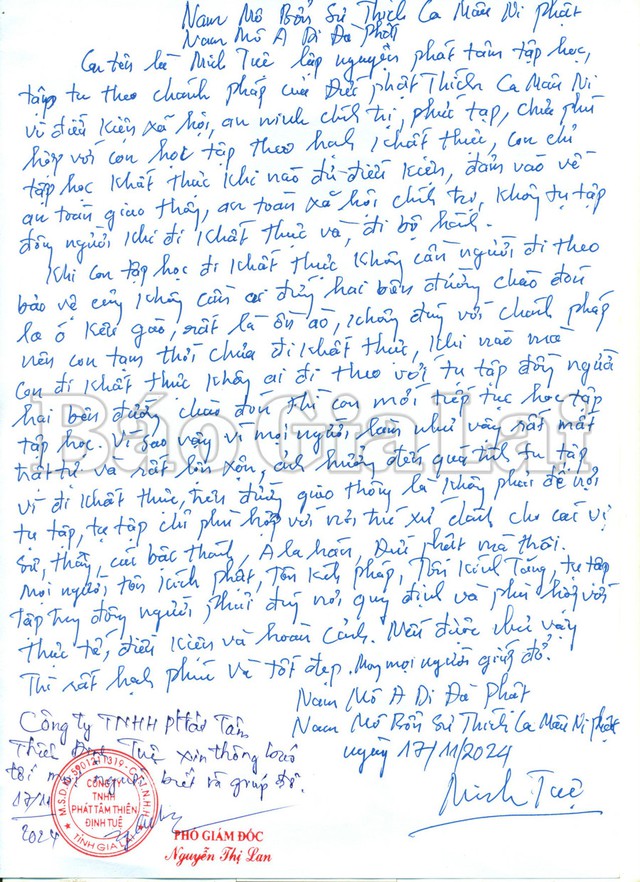 Nam Mô Bổn Sư Thích Ca Mâu Ni Phật
Nam Mô A Di Đà Phật
Con tên là Minh Tuệ lập nguyện phát tâm tập học,
tập tu theo chánh pháp của Đức phật Thích Ca Mâu Ni
vì điều kiện xã hội, an ninh chính trị, phức tạp, chưa phù
hợp với con học tập theo hạnh khất thực, con chỉ
tập học khất thực khi nào đủ điều kiện, đảm vào về
an toàn giao thông, an toàn xã hội chính trị, không tụ tập
đông người khi đi khất thực và, đi bộ hành.
Khi con tập học đi khất thực không cần người đi theo
bảo vệ cũng không cần ai đứng hai bên đường chào đón
la ó kêu gào, rất là ồn ào, không đúng với chánh pháp
nên con tạm thời chưa đi khất thực, khi nào mà
con đi khất thực không ai đi theo với tụ tập đông người
hai bên đường chào đón thì con mới tiếp tục học tập
tập học. Vì sao vậy vì mọi người làm như vậy rất mất
trật tự và rất lộn xộn, ảnh hưởng đến quá trình tu tập
vì đi khất thực, trên đường giao thông là không phải để nơi
tụ tập, tụ tập chỉ phù hợp với nơi trú xứ dành cho các vị
Sư, thầy, các bậc thánh, A la hán, Đức phật mà thôi.
Mọi người tôn kính phật, Tôn kính pháp, Tôn kính Tăng, tụ tập
tập hay đông người phải đúng nơi quy định và phù hợp với
thực tế, điều kiện và hoàn cảnh. Nếu được như vậy
Thì rất hạnh phúc và tốt đẹp. Mong mọi người giúp đỡ.
Nam Mô A Di Đà Phật
Nam Mô Bổn Sư Thích Ca Mâu Ni phật
ngày 17/11/2024
Minh Tuệ
Công ty TNHH Phát Tâm
Thiên Định Tuệ xin thông báo
tới mọi người biết và giúp đỡ.
17/11
2024
CÔNG TY
TNHH
PHÁT TÂM THIÊN
ĐỊNH TUỆ
TỈNH GIA LAI
PHÓ GIÁM ĐỐC
Nguyễn Thị Lan
Báo Gia Lai